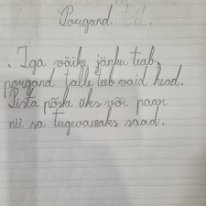 Porgand
Iga väike jänku teab,
porgand talle teeb vaid head.
Pista põske üks või paar
nii sa tugevamaks saad.